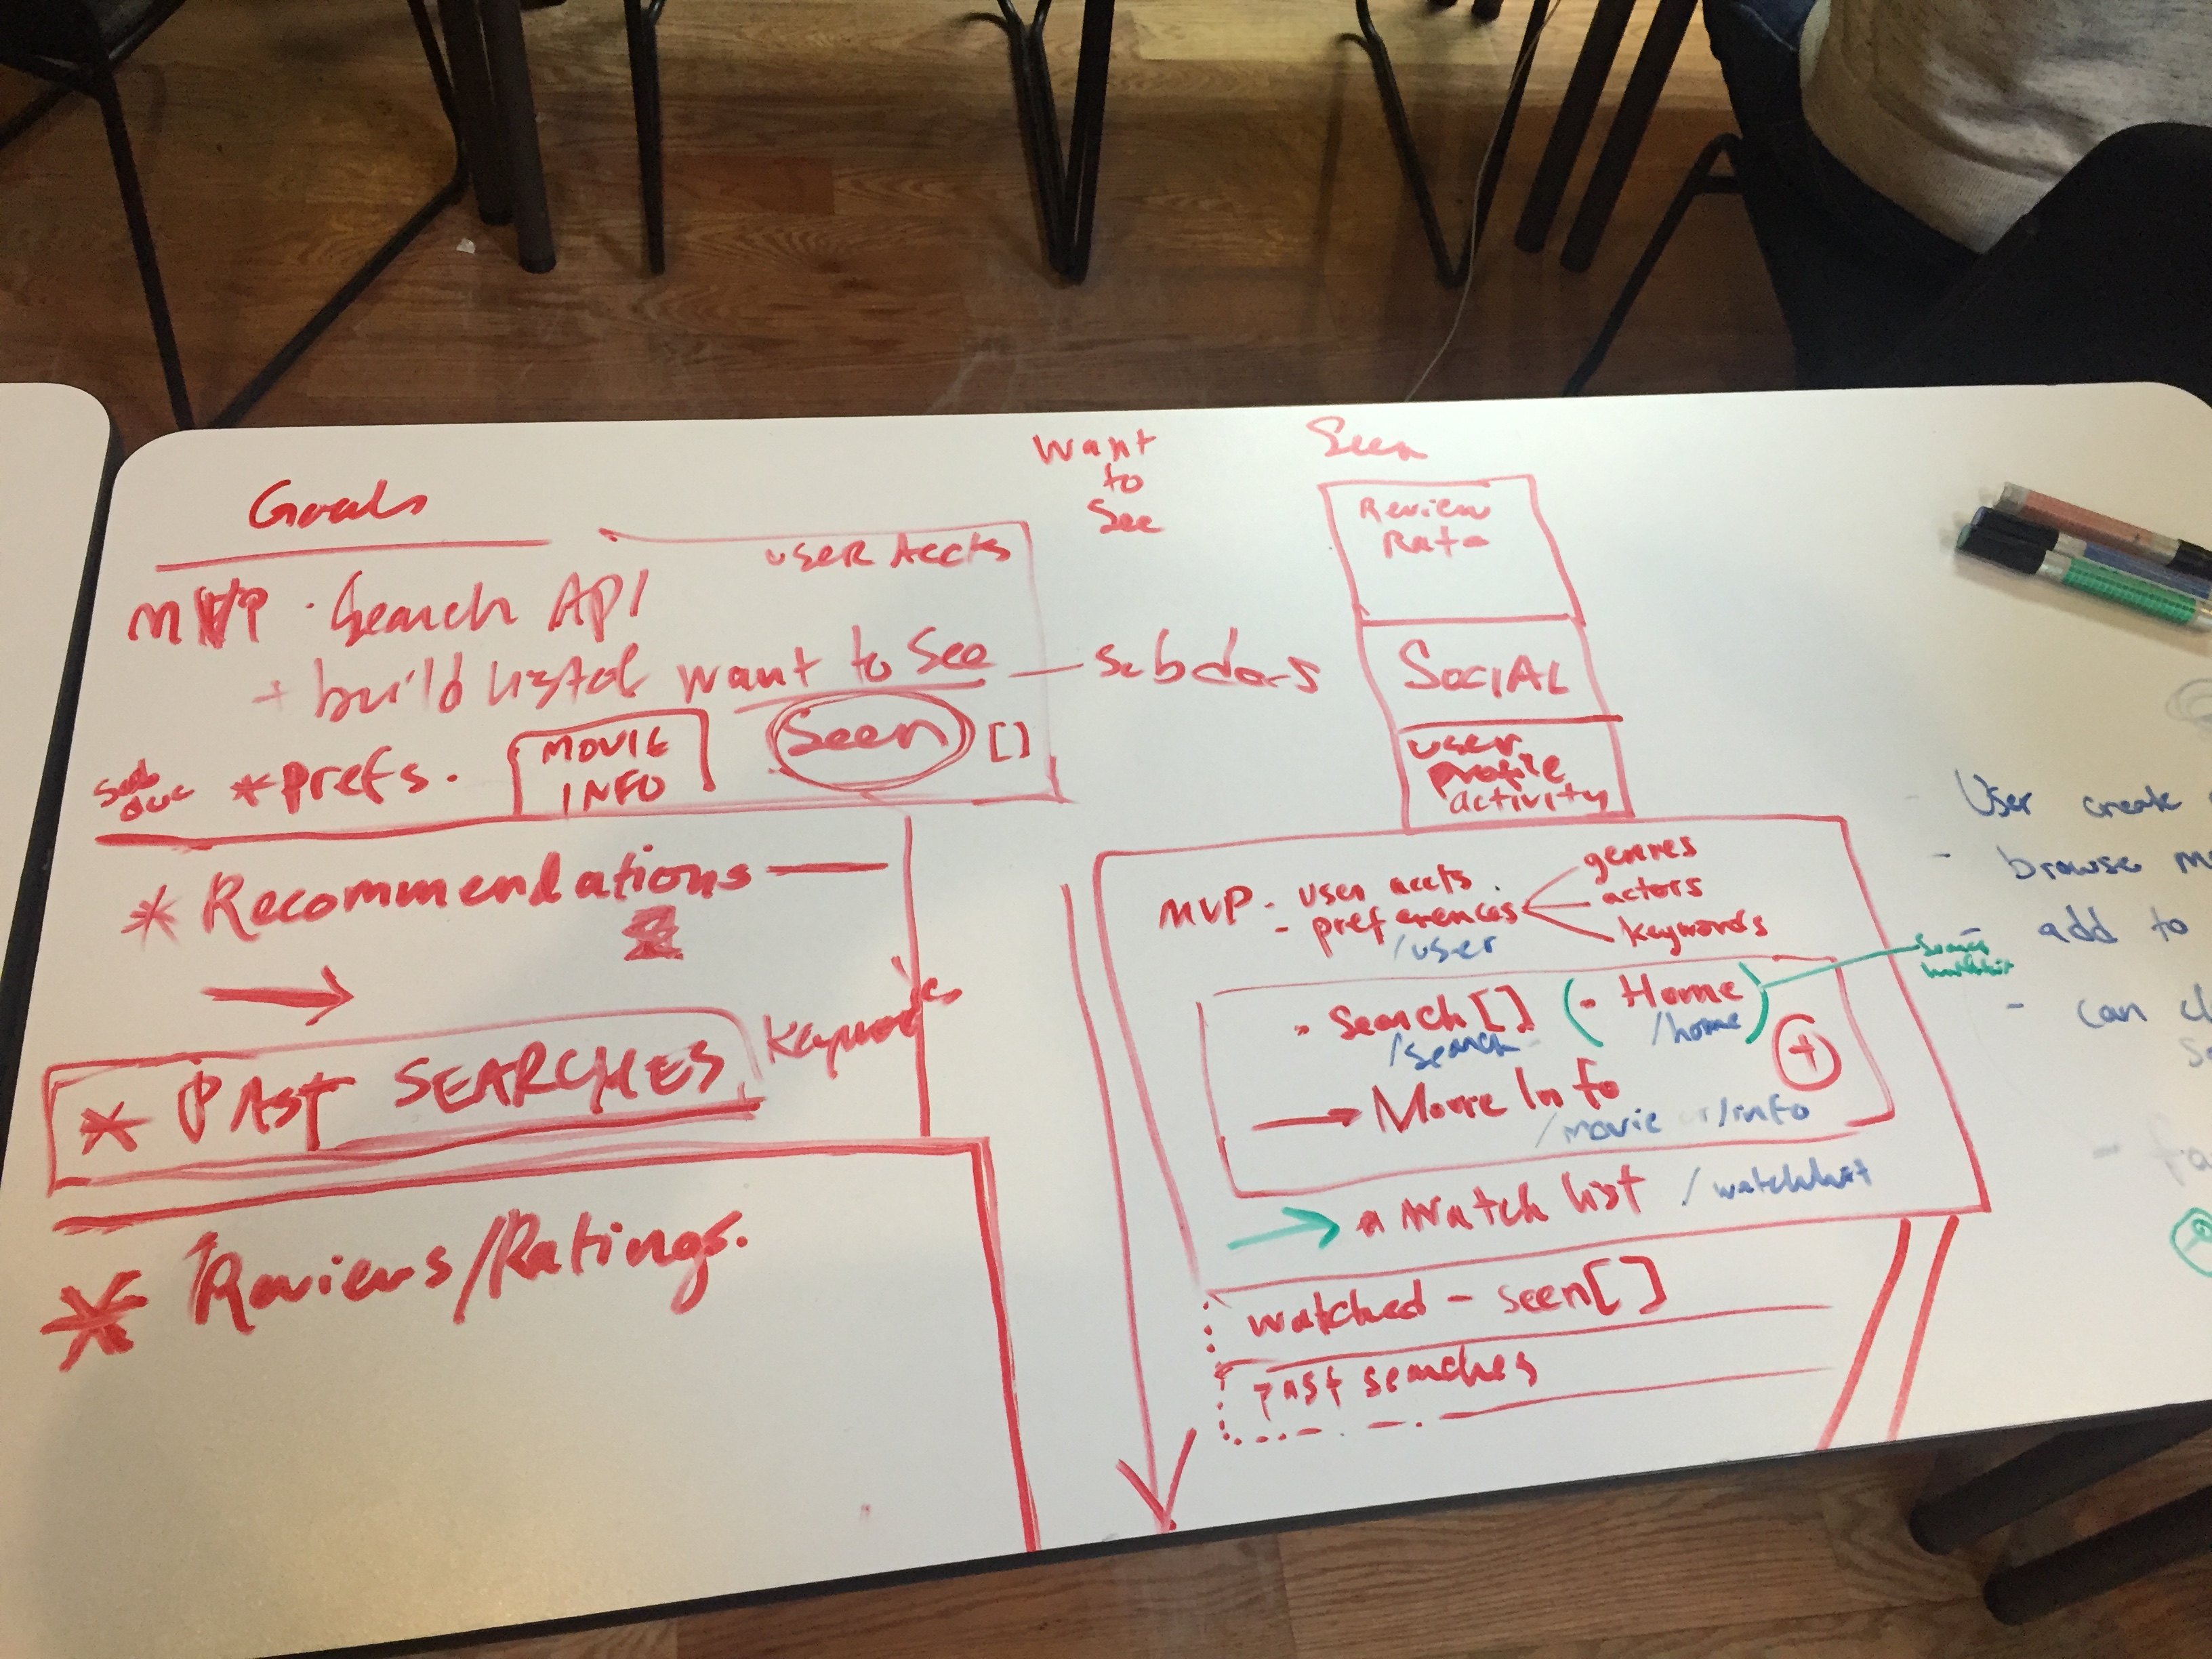 Goals
MVP · Search API
USER Accts
+ build list of want to see — subdocs
* prefs.
MOVIE
INFO
Seen []
* Recommendations —
* PAST SEARCHES
Keywords
* Reviews/Ratings.
Want
to
See
Seen
Review
Rate
SOCIAL
user
profile
activity
MVP · user accts.
- preferences
/user
genres
actors
keywords
· Search [] (· Home)
/search
/home
→ More Info
+
/movie
/info
→ * Watch list /watchlist
watched - seen []
Past searches
- User create
- browse
- add to
- can